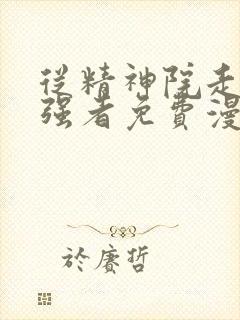 從精神院走
強者免費漫
於賡哲